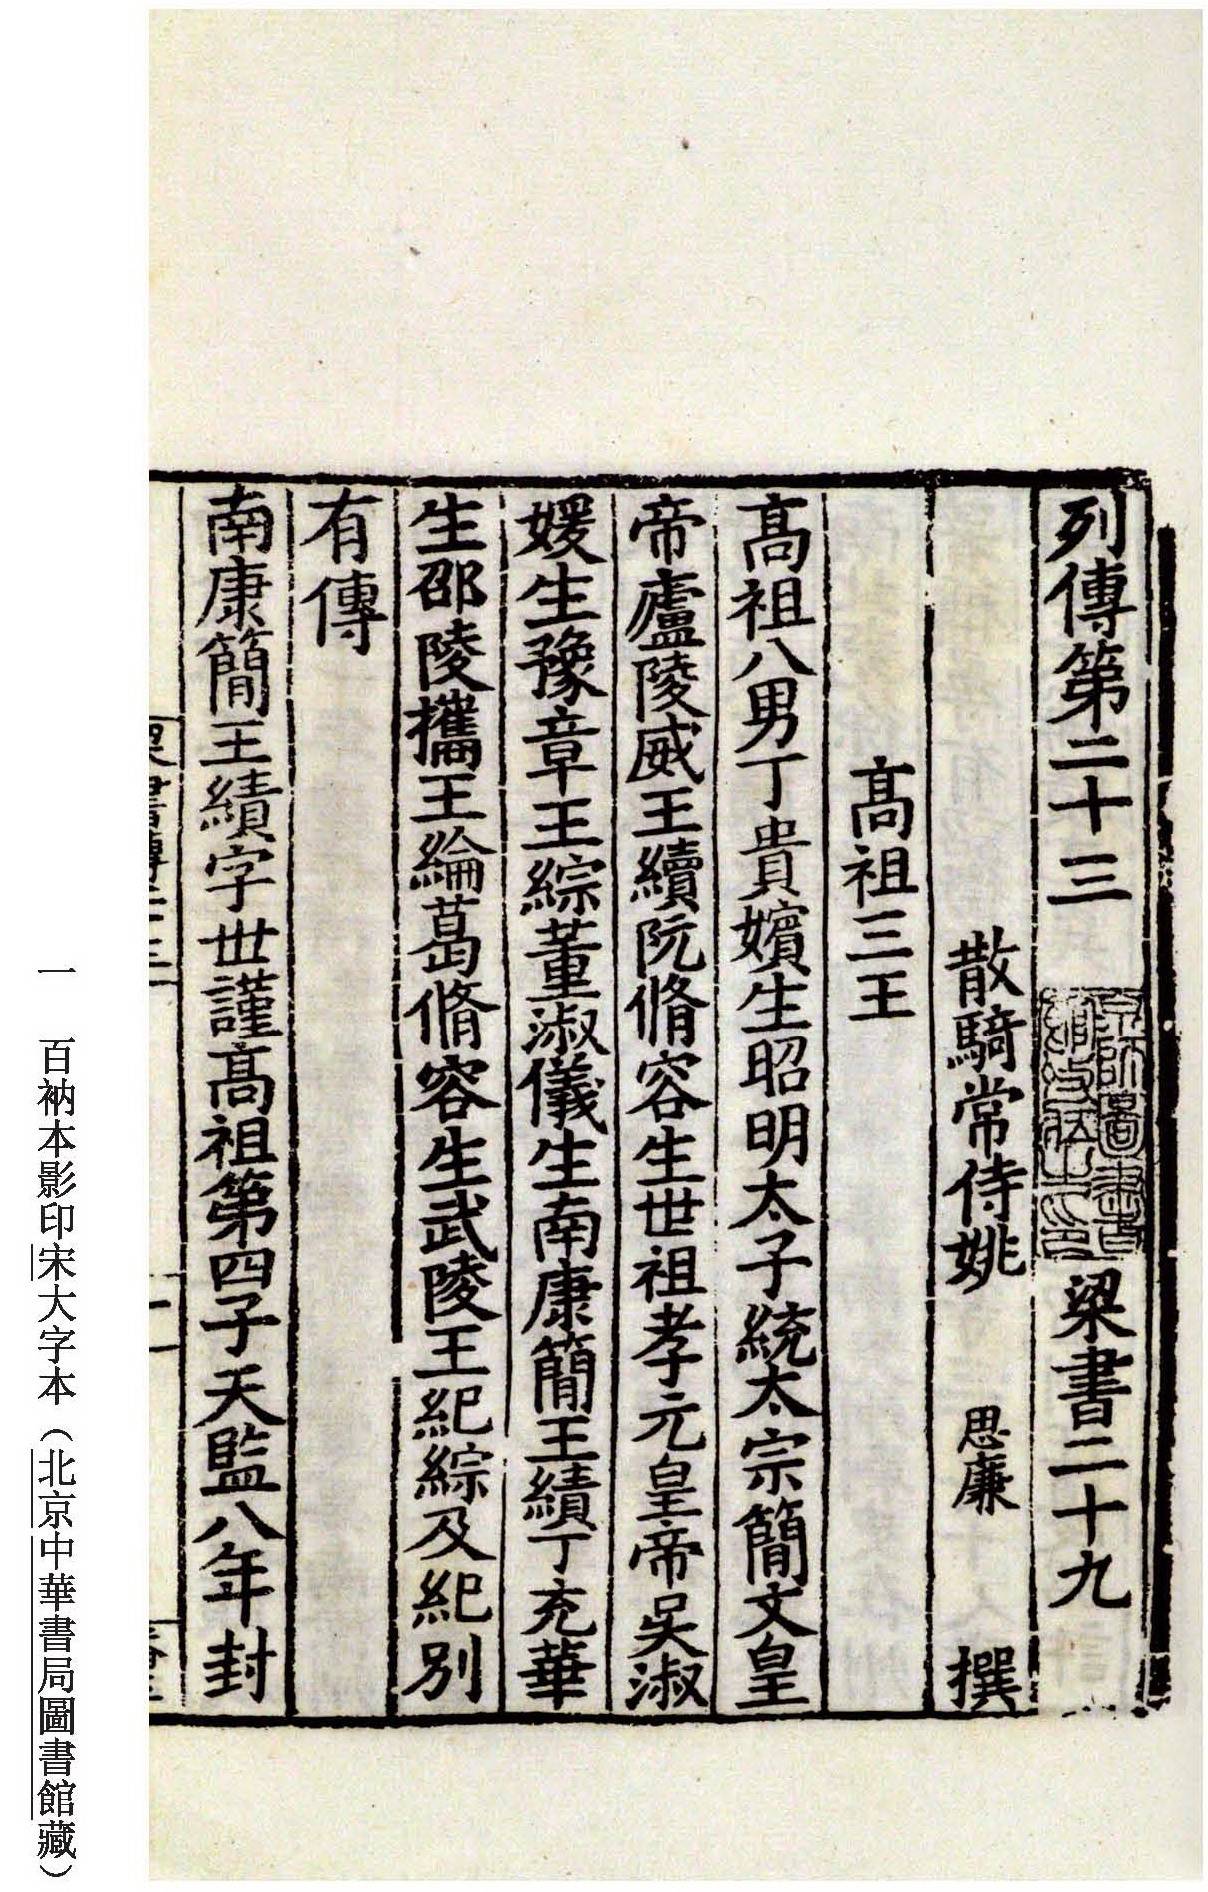 列傳第二十三 梁書二十九
京師圖書館收藏之印
散騎常侍姚 思廉 撰
髙祖三王
髙祖八男丁貴嬪生昭明太子統太宗簡文皇
帝廬陵威王續阮脩容生世祖孝元皇帝吴淑
媛生豫章王綜董淑儀生南康簡王績丁充華
生邵陵攜王綸葛脩容生武陵王紀綜及紀別
有傳
南康簡王績字世謹髙祖第四子天監八年封
一 百衲本影印宋大字本（北京中華書局圖書館藏）